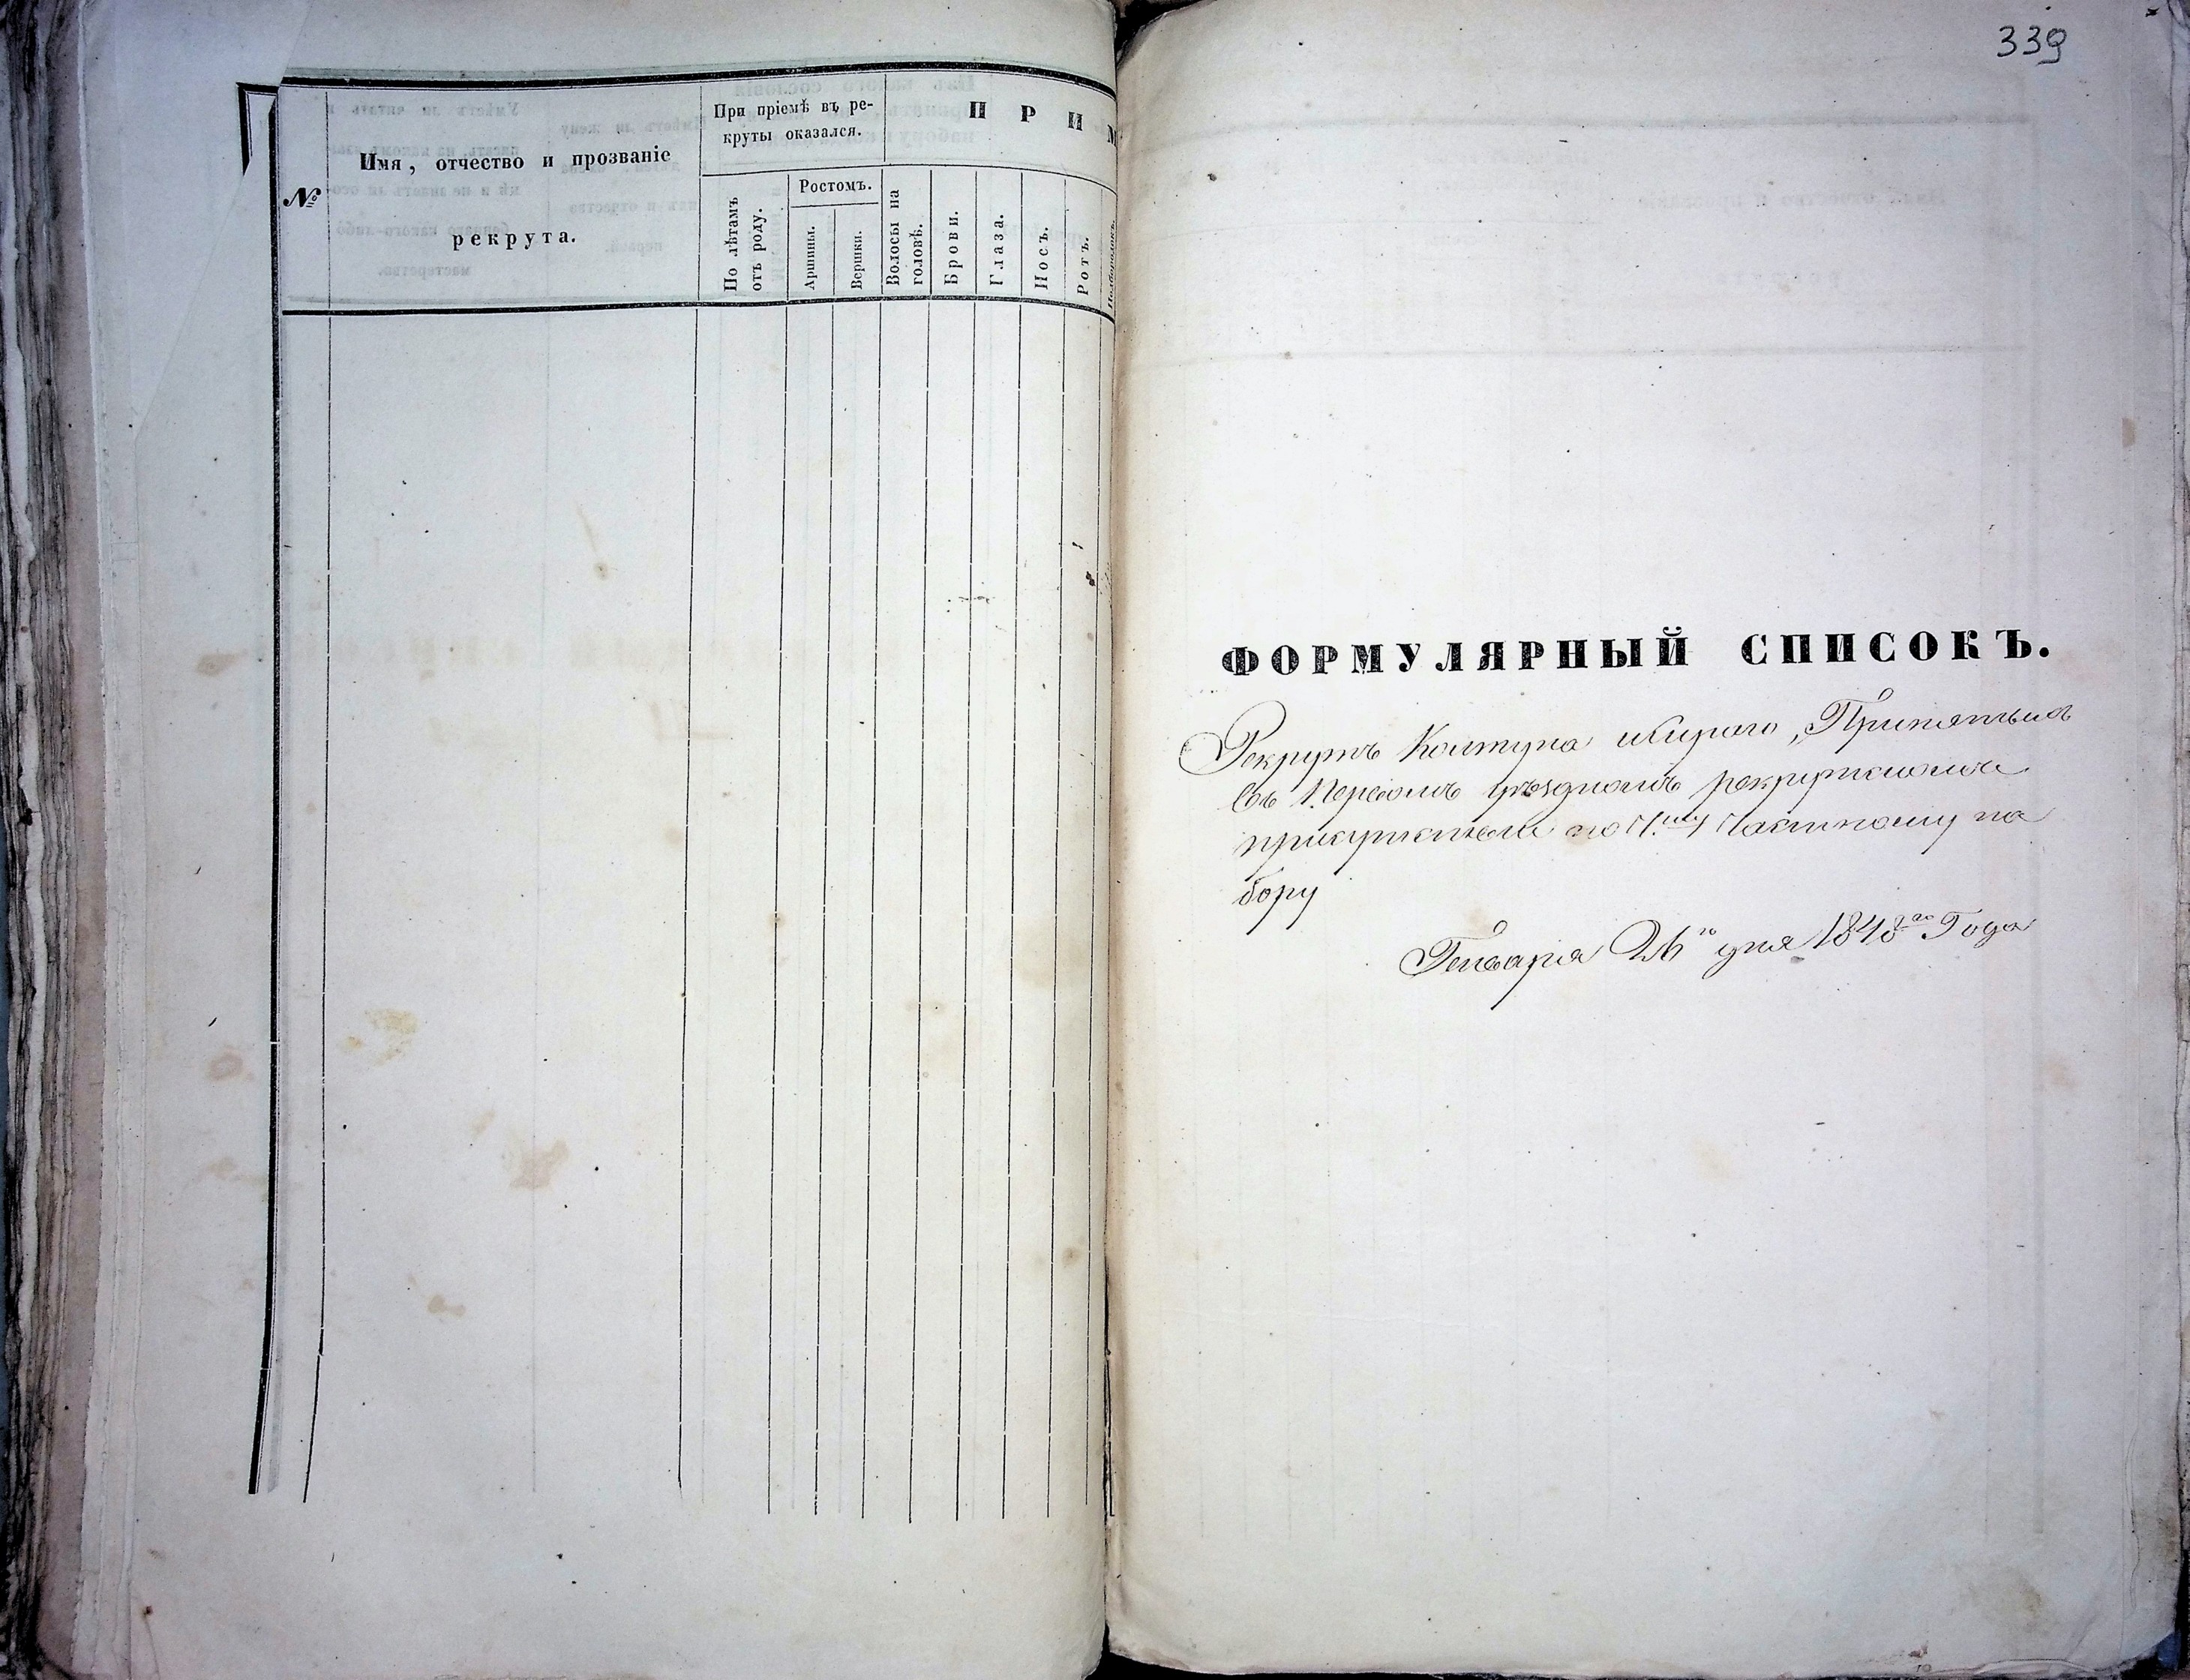 №
Имя, отчество и прозваніе
рекрута.
При пріемѣ въ ре-
круты оказался.
По лѣтамъ
отъ роду.
Ростомъ.
Аршины.
Вершки.
П Р И М
Волосы на
головѣ.
Брови.
Глаза.
Носъ.
Ротъ.
Подбородокъ.
339
ФОРМУЛЯРНЫЙ СПИСОКЪ.
Рекрутъ Принятыхъ
Въ уѣздномъ рекрутскомъ
присутствіи по Частному на
бору
Генваря 26го дня 1848го Года